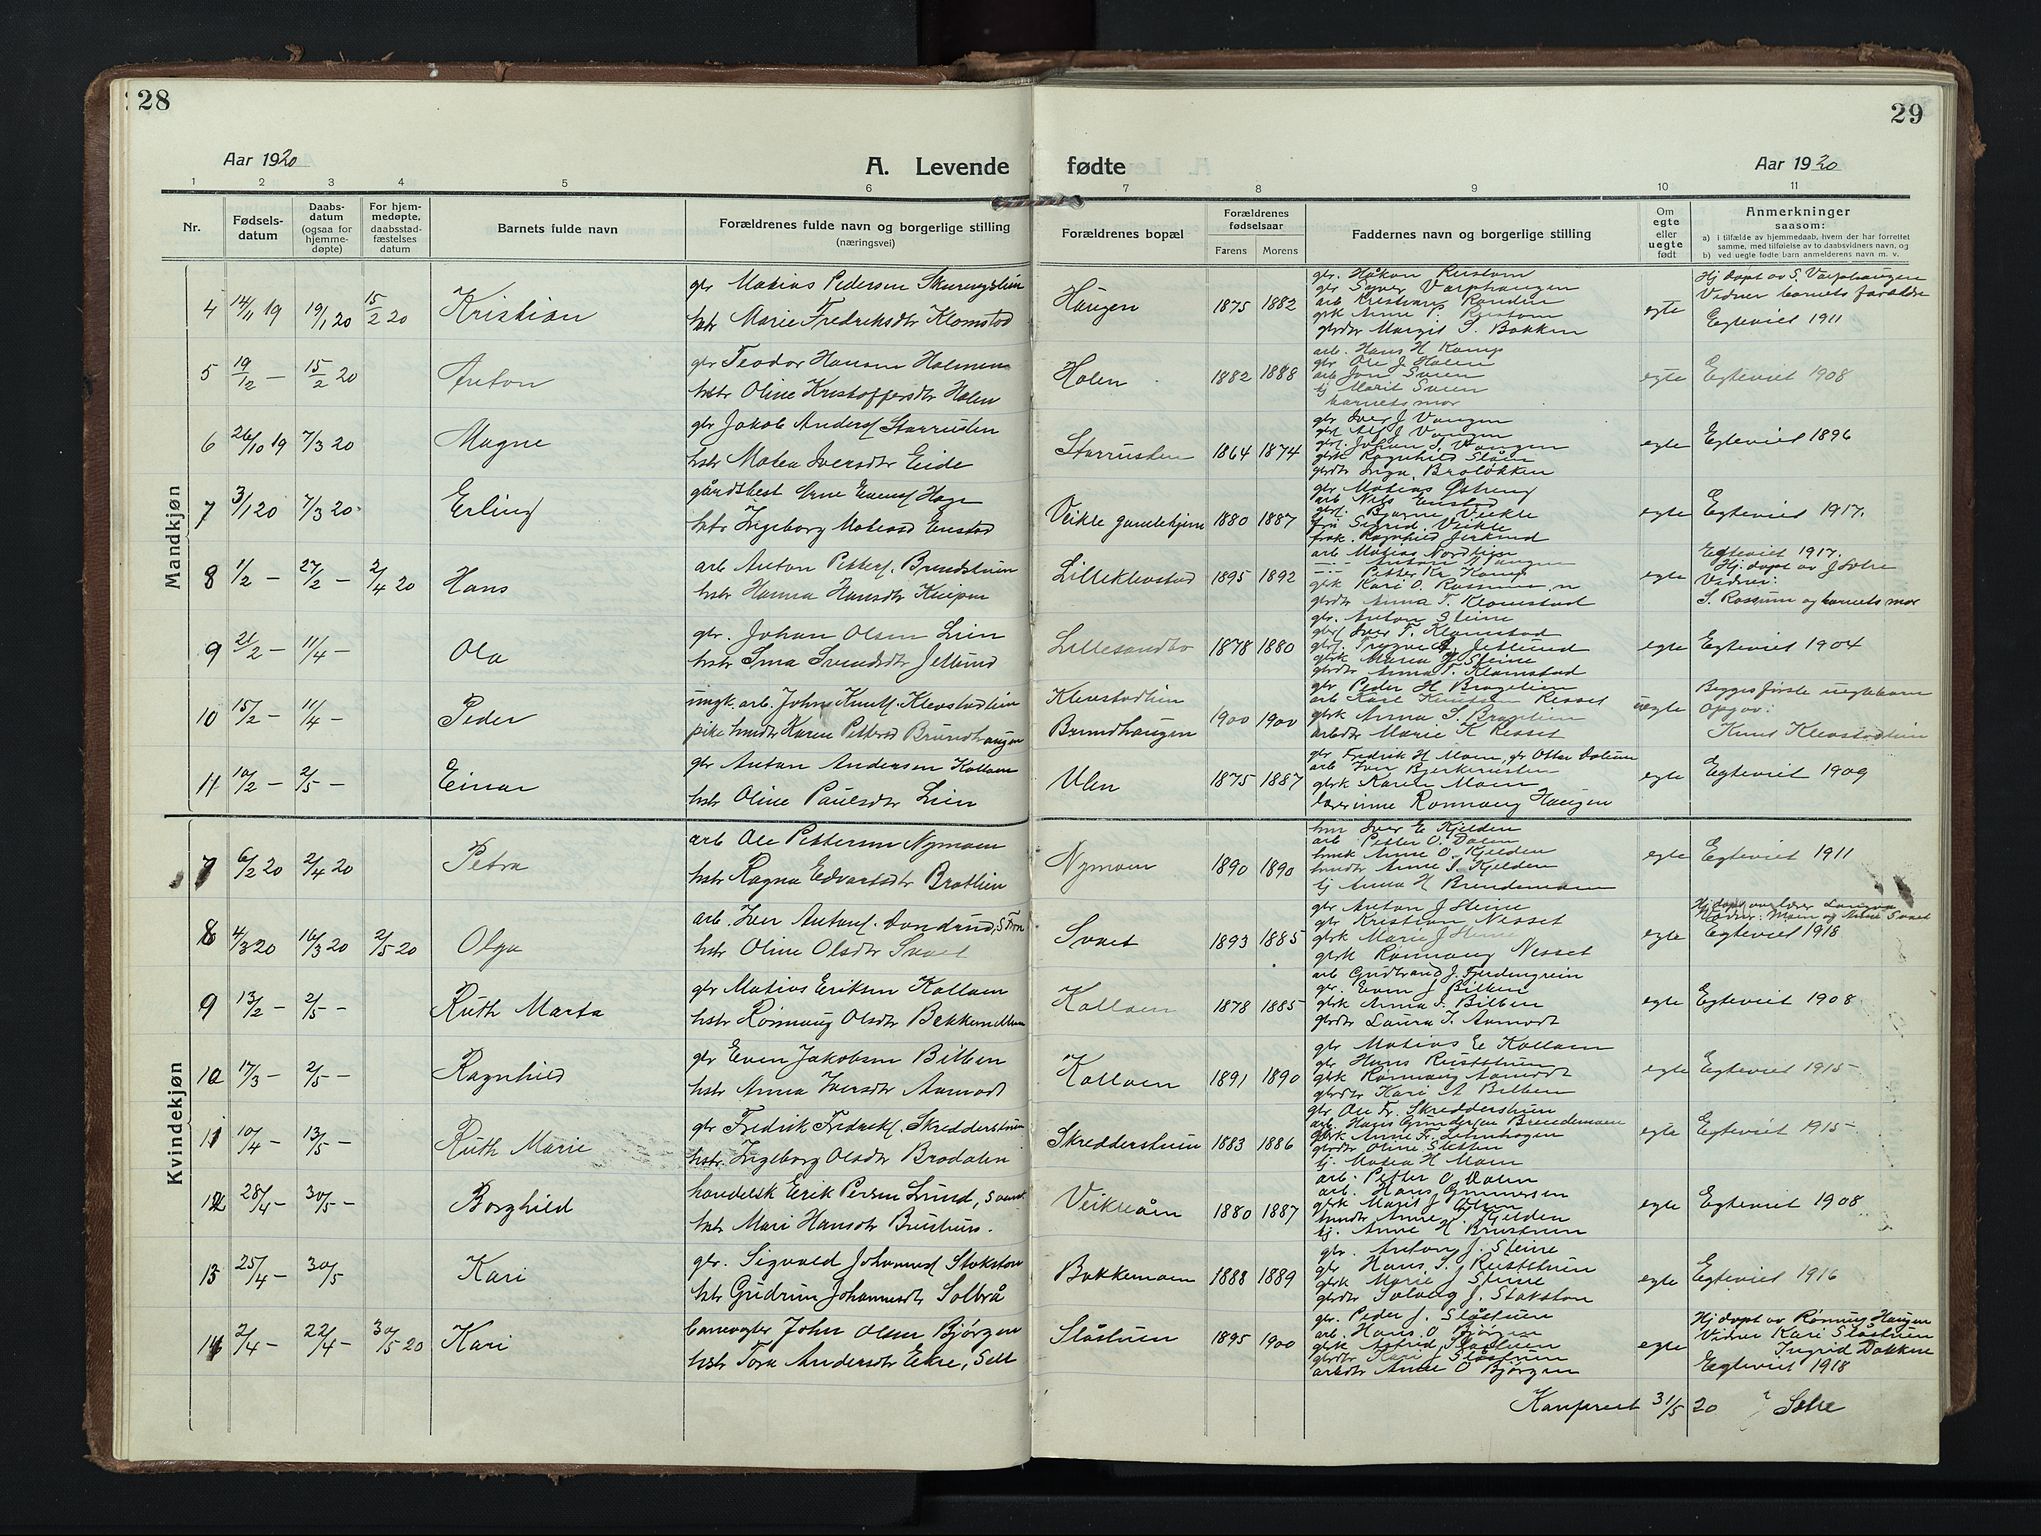 28
29
Aar 1920
A. Levende
fødte
Aar 1920
1 2 3 4 5 6 7 8 9 10 11
Nr.
Fødsels-
datum
Daabs-
datum
(ogsaa for
hjemme-
døpte)
For hjem-
medøpte,
daabsstad-
fæstelses
datum
Barnets fulde navn
Forældrenes fulde navn og borgerlige stilling
(næringsvei)
Forældrenes bopæl
Forældrenes
fødselsaar
Farens Morens
Faddernes navn og borgerlige stilling
Om
egte
eller
uegte
født
Anmerkninger
saasom:
a) i tilfælde av hjemmedaab, hvem der har forrettet
samme, med tilføielse av to daabsvidners navn, og
b) ved uegte fødte barn anmelderens navn m. v.
Mandkjøn
4 14/11 19 19/1 20 15/2 20 Kristian
gbr Matias Pedersen
hstr Marie Fredriksdtr Klomstad
Haugen 1875 1882
gbr. Håkon Rustom
gbr Syver Varphaugen
arb Kristian Randen
gbrk Anne P. Rustom
gbrdtr Margit S. Bakken
egte
Hj døpt av S. Varphaugen
Vidner barnets forældre
Egteviet 1911
5 19/12 — 15/2 20 Anton
gbr Teodor Hansen Holmen
hstr Oline Kristoffersdtr Holen
Holen 1882 1888
arb. Hans H Kamp
gbr Ole J Holen
barnets mor
egte
Egteviet 1908
6 26/10 19 7/3 20 Magne
gbr Jakob Anders Storrusten
hstr Matea Iversdtr Eide
Storrusten 1864 1874
gbr Iver J Vangen
egte
Egteviet 1896
7 3/1 20 7/3 20 Erling
gårdsbest Arne Evens Hage
hstr Ingeborg Enstad
Veikle gamlehjem 1880 1887
arb Nils Enstad
fru Sigrid Veikle
frøk. Ragnhild Jerkind
egte
Egteviet 1917.
8 1/2 — 27/2 — 2/4 20 Hans
arb Anton Petters. Brendstuen
hstr Hanna Hansdtr Kleipen
Lilleklevstad 1895 1892
arb Matias Nordlien
Petter Kr Kamp
gbrdtr Anna F. Klomstad
egte
Egteviet 1917.
Hj. døpt av J Solre
Vidner:
og barnets mor
9 21/2 — 11/4 — Ola
gbr. Johan Olsen Lien
hstr Svendsdtr Jetlund
Lillesandbo 1878 1880
gbr. Anton Steine
gbrs Iver F. Klomstad
gbrk Maria J Steine
gbrdtr Anna F. Klomstad
egte
Egteviet 1904
10 15/2 — 11/4 — Peder
ungk. arb. John Knuts. Klevstadlien
pike hmdtr Karen Petters Brundhaugen
Klevstadlien
Brundhaugen 1900 1900
gbr Peder H Bragelien
arb Karl Knutsen Resset
gbrk Anna S Bragelien
arbdtr Marie K Resset
uegte
Begges første uegte barn
Opgav:
Knut Klevstadlien
11 10/2 — 2/5 — Einar
gbr Anton Andersen Kolloen
hstr Oline Paulsdtr Lien
Ulen 1875 1887
gbr Fredrik H Moen, gbr Otter Dalum
arb Iver Bjerkerusten
gbrk Karen Moen
lærerinne Rønnaug Haugen
egte
Egteviet 1909
Kvindekjøn
7 6/2 20 2/4 20 Petra
arb Ole Pettersen Nymoen
hstr Ragna Edvartsdtr Bratlien
Nymoen 1890 1890
hm Iver E Kjelden
arb Petter O. Dalen
hmk Anne O. Kjelden
hmdtr Anne I. Kjelden
tj Anna H Brendemoen
egte
Egteviet 1911
8 4/3 20 16/3 20 2/5 20 Olga
arb. Iver Antons. S Fron
hstr Oline Olsdtr Svaet
Svaet 1893 1885
gbr Anton J Steine
gbr Kristian Nesset
gbrk Marie J Steine
gbrk Rønnaug Nesset
egte
Egteviet 1918
9 13/2 — 2/5 — Ruth Marta
gbr Matias Eriksen Kolloen
hstr Rønnaug Olsdtr Bekkemellem
Kolloen 1878 1885
gbr. Even J Bilben
gbrk Anna I. Bilben
gbrdtr Laura I. Aamodt
egte
Egteviet 1908
10 17/3 — 2/5 — Ragnhild
gbr Even Jakobsen Bilben
hstr Anna Iversdtr Aamodt
Kolloen 1891 1890
gbr Matias E Kolloen
gbr Hans Ruststuen
gbrk Rønnaug Aamodt
gbrdtr Kari A Bilben
egte
Egteviet 1915
11 10/4 — 13/5 — Ruth Marie
gbr Fredrik Fredriks. Skredderstuen
hstr Ingeborg Olsdtr Brodalen
Skredderstuen 1883 1886
gbr Ole Fr. Skredderstuen
gbrk Anne F. Lehnhagen
tj. Matea H Moen
egte
Egteviet 1915
12 28/4 — 30/5 — Borghild
handelsk Erik Persen Lund,
hstr Mari Hansdtr Brustuen.
Veikleåen 1880 1887
arb. Petter O Dalen
arb. Hans Gunnersen
gbrk Marit J Olsen
hmdtr Anne I. Kjelden
tj. Anne H Brustuen
egte
Egteviet 1908
13 25/4 — 30/5 Kari
gbr. Sigvald Johannes Stokstad
hstr Gudrun Johannesdtr Solbrå
Bakkemoen 1888 1889
gbr. Anton J. Steine
gbr Hans S. Ruststuen
gbrk Marie J Steine
gbrdtr Solveig J. Stokstad
egte
Egteviet 1916
14 2/4 — 22/4 — 30/5 20 Kari
banevogter John Olsen Bjørgen
hstr Tora Andersdtr Ekre, Sell
Slåstuen 1895 1900
gbr. Peder J. Slåstuen
arb. Hans O Bjørgen
gbrk Astrid Slåstuen
gbrdtr Kari Slåstuen
arbdtr Anne O Bjørgen
egte
Hj døpt av Rønnug Haugen
Vidner Kari Slåstuen
Ingrid Dokken
Egteviet 1918
Konferert 31/5 20 Solre